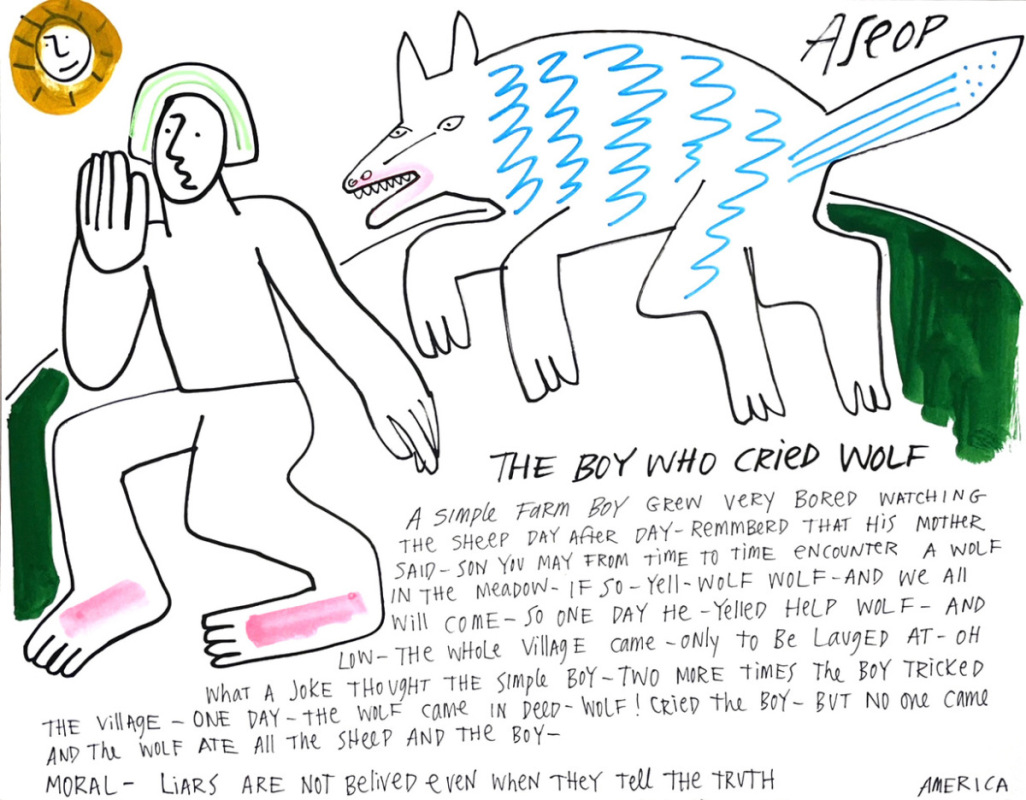 ASEOP
THE BOY WHO CRieD WOLF
A SiMPLE FARM BOY GREW VERY BORED WATCHING
THE SHEEP DAY AFTER DAY-REMMBERD THAT HiS MOTHER
SAiD-SON YOU MAY FROM TiME TO TiME eNCOUNTER A WOLF
iN THE MEADOW-IF SO-Yell-WOLF WOLF-AND We All
Will COME-SO ONE DAY He-YELLED HELP WOLF-AND
LOW-THE WHOLE VillAGE CAME-ONLY TO BE LAUGED AT-OH
WHAT A JOKE THOUGHT THE SiMPLE BOY-TWO MORE TiMES The BOY TRiCKED
THE VillAGE-ONE DAY-THE WOLF CAME IN DEED-WOLF! CRiED The BOY-BUT NO ONE CAME
AND The WOLF ATE All THE SHEEP AND THE BOY-
MORAL- LiARS ARE NOT BELiVED eVEN WHEN THEY TEll THE TRUTH
AMERICA